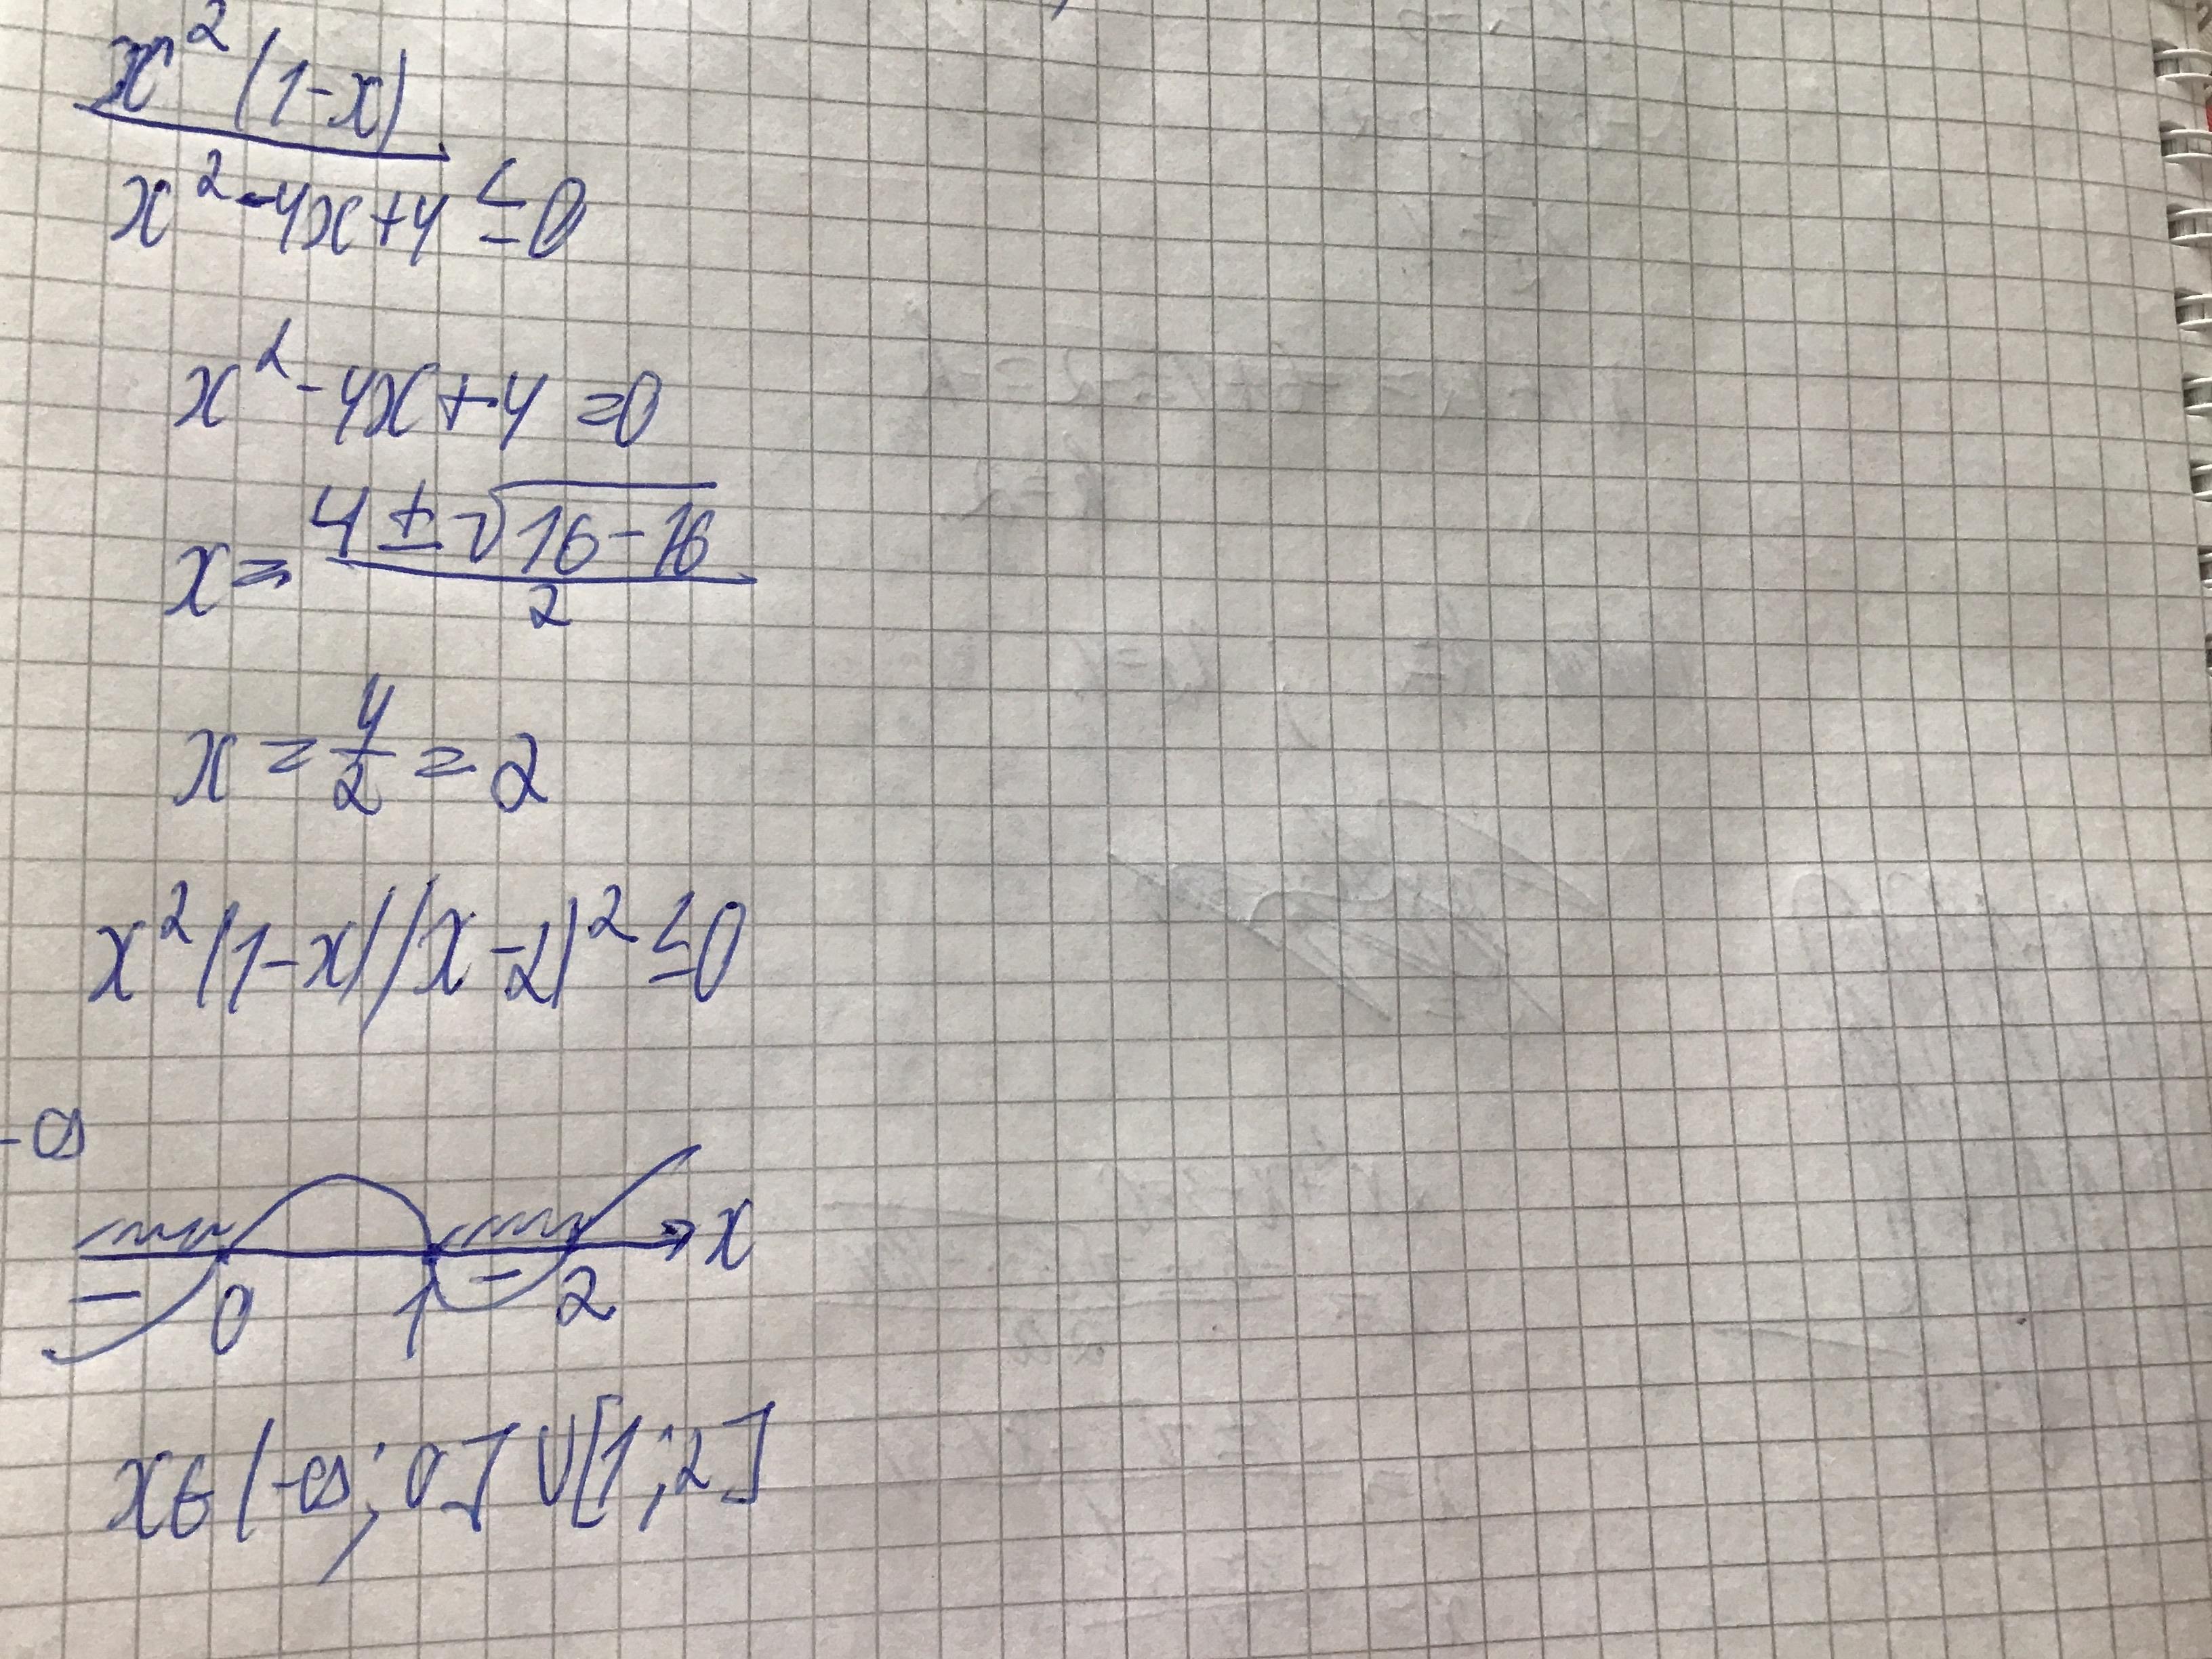 x²(1-x)
x²-4x+4 ≤0
x²-4x+4=0
x=4±√16-16
2
x=4/2=2
x²(1-x)(x-2)²≤0
-∞
x
- 0 1 - 2
x∈(-∞;0]∪[1;2]